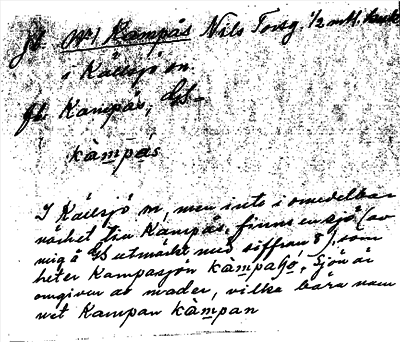 Jb. Nr 1 Kampås Nils Torsg. 1/2 mtl.
i Källsjö sn.
Jb. Kampås, GS-
kàmpás
I Källsjö sn, men inte i omedelbar
närhet till Kampås, finns en sjö (av
mig å GS utmärkt med siffran 8), som
heter Kampasjön kàmpaʃó. Sjön är
omgiven av mader, vilka bära nam-
net Kampan kàmpan